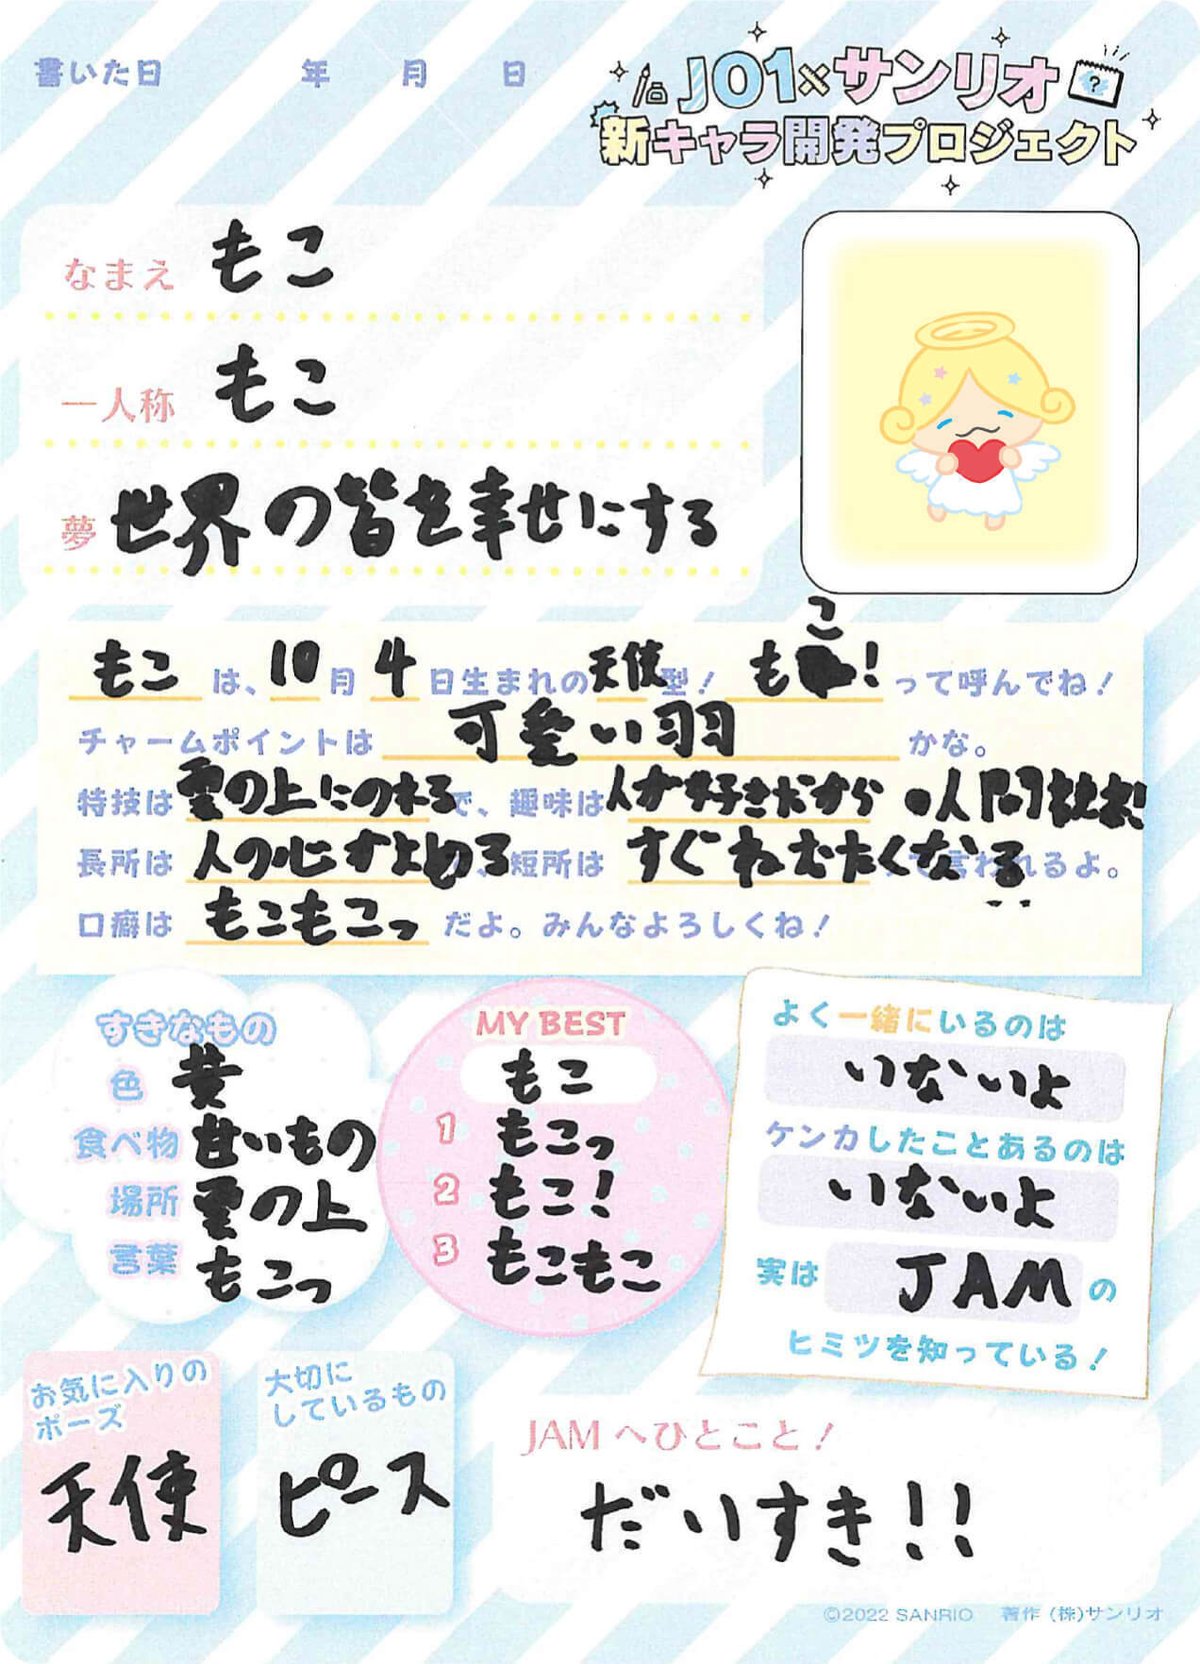 書いた日 年 月 日
JO1×サンリオ
新キャラ開発プロジェクト
なまえ もこ
一人称 もこ
夢 世界の皆を幸せにする
もこ は、10月 4 日生まれの天使型! もこ! って呼んでね!
チャームポイントは 可愛い羽 かな。
特技は雲の上にのれるで、趣味は人が好きだから人間観察!
長所は 人の心すよめる、短所は すぐねむたくなる て言われるよ。
口癖は もこもこっ だよ。みんなよろしくね!
すきなもの
色 黄
食べ物 甘いもの
場所 雲の上
言葉 もこっ
MY BEST
もこ
1 もこっ
2 もこ!
3 もこもこ
よく一緒にいるのは
いないよ
ケンカしたことあるのは
いないよ
実は JAM の
ヒミツを知っている!
お気に入りの
ポーズ
天使
大切に
しているもの
ピース
JAMへひとこと!
だいすき!!
©2022 SANRIO 著作 (株)サンリオ